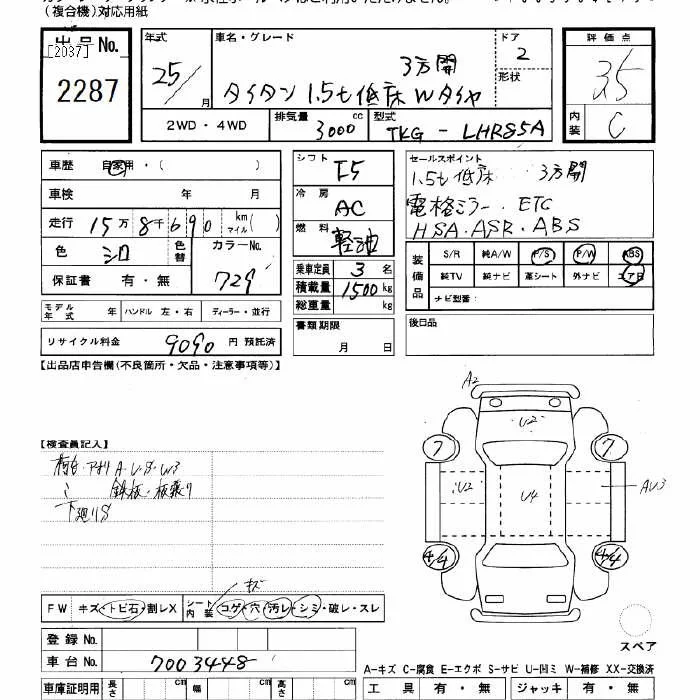 (複合機)対応用紙
出品No.
[2037]
2287
年式
25/
月
車名・グレード
3方開
タイタン 1.5t 低床 Wタイヤ
ドア
2
形状
2WD・4WD
排気量
3000
cc
型式
TKG - LHR85A
評価点
3.5
内装
C
車歴
自家用・( )
車検 年 月
走行 15万8千690 km マイル( )
色
シロ
色替
カラーNo.
729
保証書 有・無
モデル年式 年 ハンドル 左・右 ディーラー・並行
リサイクル料金 9090 円 預託済
シフト
F5
冷房
AC
燃料
軽油
乗車定員 3 名
積載量 1500 kg
総重量 kg
書類期限
月 日
セールスポイント
1.5t 低床 3方開
電格ミラー. ETC
HSA. ASR. ABS
装備品
S/R 純A/W F/S P/W ABS
純TV 純ナビ 革シート 外ナビ エアB
ナビ型番:
後日品
【出品店申告欄(不良箇所・欠品・注意事項等)】
【検査員記入】
荷台・アオリ A・U・S・W3
〃 鉄板・板張り
下廻りS
A2
U2
7
7
U2
U4
AU3
4/4
4/4
スペア
キズ
FW キズ・トビ石・割レX
シート内装 コゲ・穴・汚レ・シミ・破レ・スレ
登録No.
車台No. 7003448
車庫証明用 長さ cm 幅 cm 高さ cm
A-キズ C-腐食 E-エクボ S-サビ U-凹ミ W-補修 XX-交換済
工具 有・無 ジャッキ 有・無